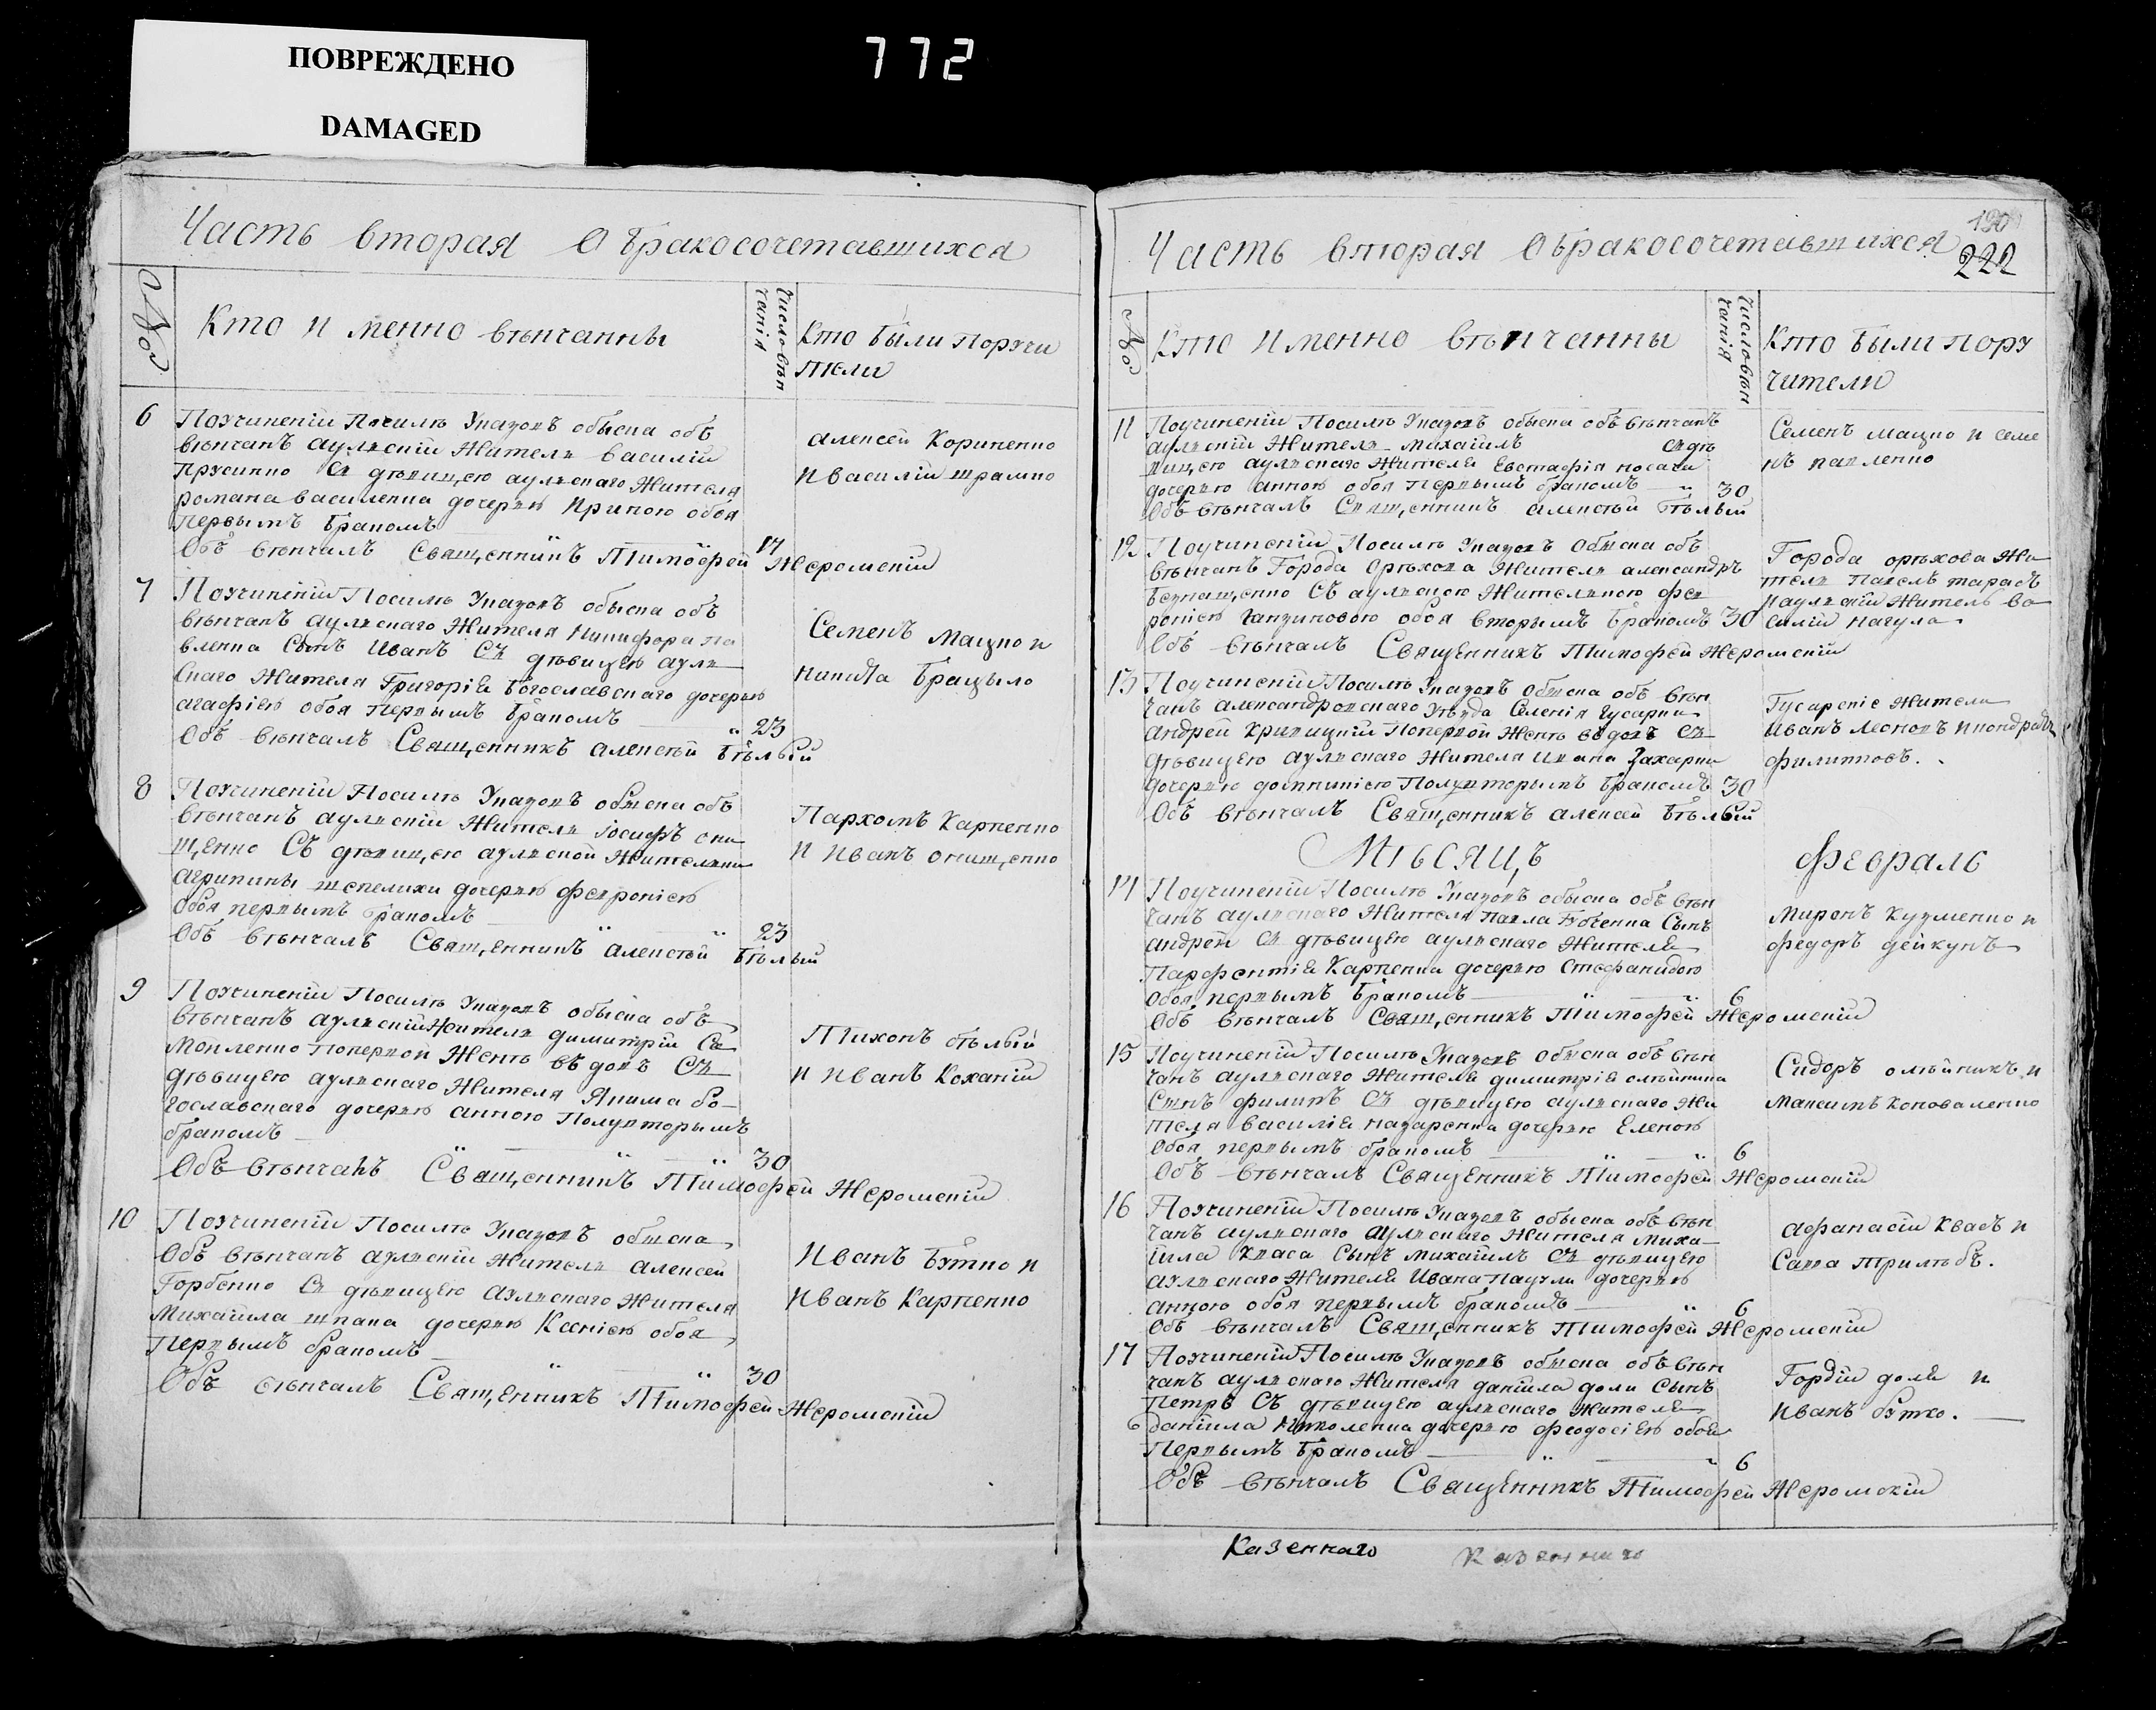 ПОВРЕЖДЕНО
DAMAGED
772
Часть вторая О бракосочетавшихся
№
Кто именно вѣнчанны
Число вѣн
чанія
Кто были поручи
тели
6
Поучиненіи Посилѣ Указовъ обыска объ
вѣнчанъ аульскій житель василій
Прусикко съ дѣвицею аульскаго жителя
романа василенка дочерью Ириною обоя
Первымъ бракомъ
17
Объ вѣнчалъ Священникъ Тимофей Жеромскій
алексей Кориненко
и василій шрамко
7
Поучиненіи Посилѣ Указовъ обыска объ
вѣнчанъ аульскаго жителя никифора па
вленка сынъ иванъ съ дѣвицею ауль
скаго жителя Григорія Богославскаго дочерью
агафіею обоя первымъ бракомъ
23
Объ вѣнчалъ Священникъ алексѣй Бѣлый
Семенъ мацко и
никита Брацыло
8
Поучиненіи Посилѣ Указовъ обыска объ
вѣнчанъ аульскій житель іосифъ они
щенко съ дѣвицею аульской жительки
агрипины шепелихи дочерью февроніею
обоя первымъ бракомъ
23
Объ вѣнчалъ Священникъ алексѣй Бѣлый
Пархомъ Карпенко
и иванъ онищенко
9
Поучиненіи Посилѣ Указовъ обыска объ
вѣнчанъ аульскій житель димитрій Са
мойленко поперной женѣ вдовъ съ
дѣвицею аульскаго жителя Якима бо
гославскаго дочерью анною Полувторымъ
бракомъ
30
Объ вѣнчанъ Священникъ Тимофей Жеромскій
Тихонъ бѣлый
и иванъ Коханій
10
Поучиненіи Посилѣ Указовъ обыска
Объ вѣнчанъ аульскій житель алексей
Горбенко съ дѣвицею аульскаго жителя
Михайила шпака дочерью Ксеніею обоя
Первымъ бракомъ
30
Объ вѣнчалъ Священникъ Тимофей Жеромскій
Иванъ Бутко и
Иванъ Карпенко
190
222
Часть вторая О бракосочетавшихся
№
Кто именно вѣнчанны
Число вѣн
чанія
Кто были пору
чители
11
Поучиненіи Посилѣ Указовъ обыска объ вѣнчанъ
аульскій житель михаилъ съ дѣ
вицею аульскаго жителя Евстафія носача
дочерью анною обоя первымъ бракомъ 30
Объ вѣнчалъ Священникъ алексѣй Бѣлый
Семенъ мацко и семе
нъ павленко
12
Поучиненіи Посилѣ Указовъ обыска объ
вѣнчанъ Города Орѣхова житель александръ
безнащенко съ аульскою жителькою фев
роніею ганзиковою обоя вторымъ бракомъ 30
Объ вѣнчалъ Священникъ Тимофей Жеромскій
Города орѣхова жи
тель павелъ тарасъ
и аульскій житель ва
силій нагула
13
Поучиненіи Посилѣ Указовъ обыска объ вѣн
чанъ александровскаго уѣзда селенія гусарки
андрей кривицкій поперной женѣ вдовъ съ
дѣвицею аульскаго жителя ивана Захарки
дочерью домникіею Полувторымъ бракомъ 30
Объ вѣнчалъ Священникъ алексей Бѣлый
Гусарскіе жители
иванъ леоновъ и кондратъ
филиповъ.
Мѣсяцъ февраль
14
Поучиненіи Посилѣ Указовъ обыска объ вѣн
чанъ аульскаго жителя павла Боченка сынъ
андрей съ дѣвицею аульскаго жителя
Парфентія Карпенка дочерью Стефанидою
обоя первымъ бракомъ 6
Объ вѣнчалъ Священникъ Тимофей Жеромскій
миронъ кузменко и
федоръ дейкунъ
15
Поучиненіи Посилѣ Указовъ обыска объ вѣн
чанъ аульскаго жителя димитрія олѣйника
сынъ филипъ съ дѣвицею аульскаго жи
теля василія назаренка дочерью Еленою
обоя первымъ бракомъ 6
Объ вѣнчалъ Священникъ Тимофей Жеромскій
Сидоръ олѣйникъ и
максимъ коноваленко
16
Поучиненіи Посилѣ Указовъ обыска объ вѣн
чанъ аульскаго аульскаго жителя миха
йила кваса сынъ михаилъ съ дѣвицею
аульскаго жителя ивана паузли дочерью
анною обоя первымъ бракомъ 6
Объ вѣнчалъ Священникъ Тимофей Жеромскій
афанасій квасъ и
Сава трилѣбъ.
17
Поучиненіи Посилѣ Указовъ обыска объ вѣн
чанъ аульскаго жителя даніила доли сынъ
Петръ съ дѣвицею аульскаго жителя
даніила дочерью феодосіею обоя
Первымъ бракомъ 6
Объ вѣнчалъ Священникъ Тимофей Жеромскій
Гордій доля и
иванъ бутко.
Казеннаго Казеннаго